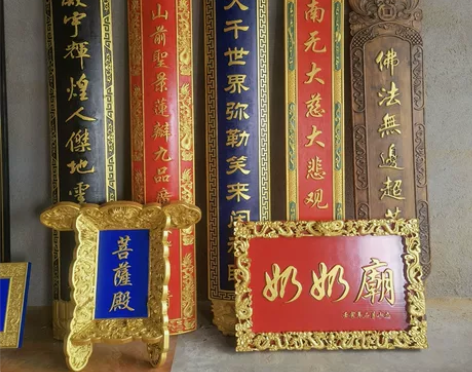 殿宇輝煌人傑地靈
山前聖景蓮辦九品
大千世界弥勒笑来
南无大慈大悲观
佛法無邊超
菩薩殿
奶奶廟